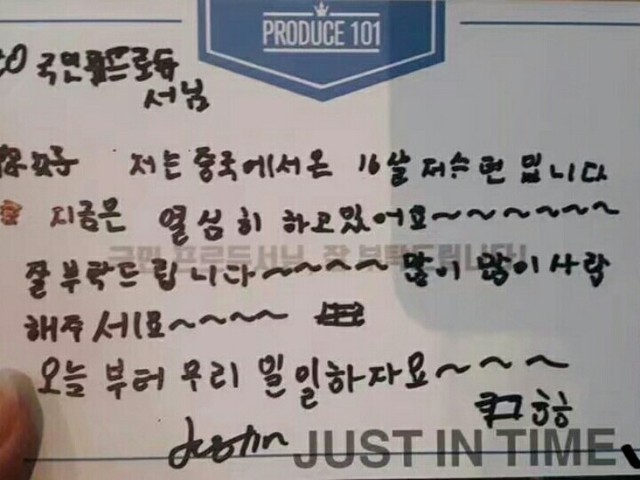 PRODUCE 101
TO 국민프로듀
서님
你好 저는 중국에서온 16살 저스틴 입니다
지금은 열심히 하고있어요~~~~~~~
국민 프로듀서님, 잘 부탁드립니다!
잘 부탁드립니다~~~~ 많이 많이 사랍
해주세요~~~~
오늘 부터 우리 일일하자요~~~
Justin
JUST IN TIME